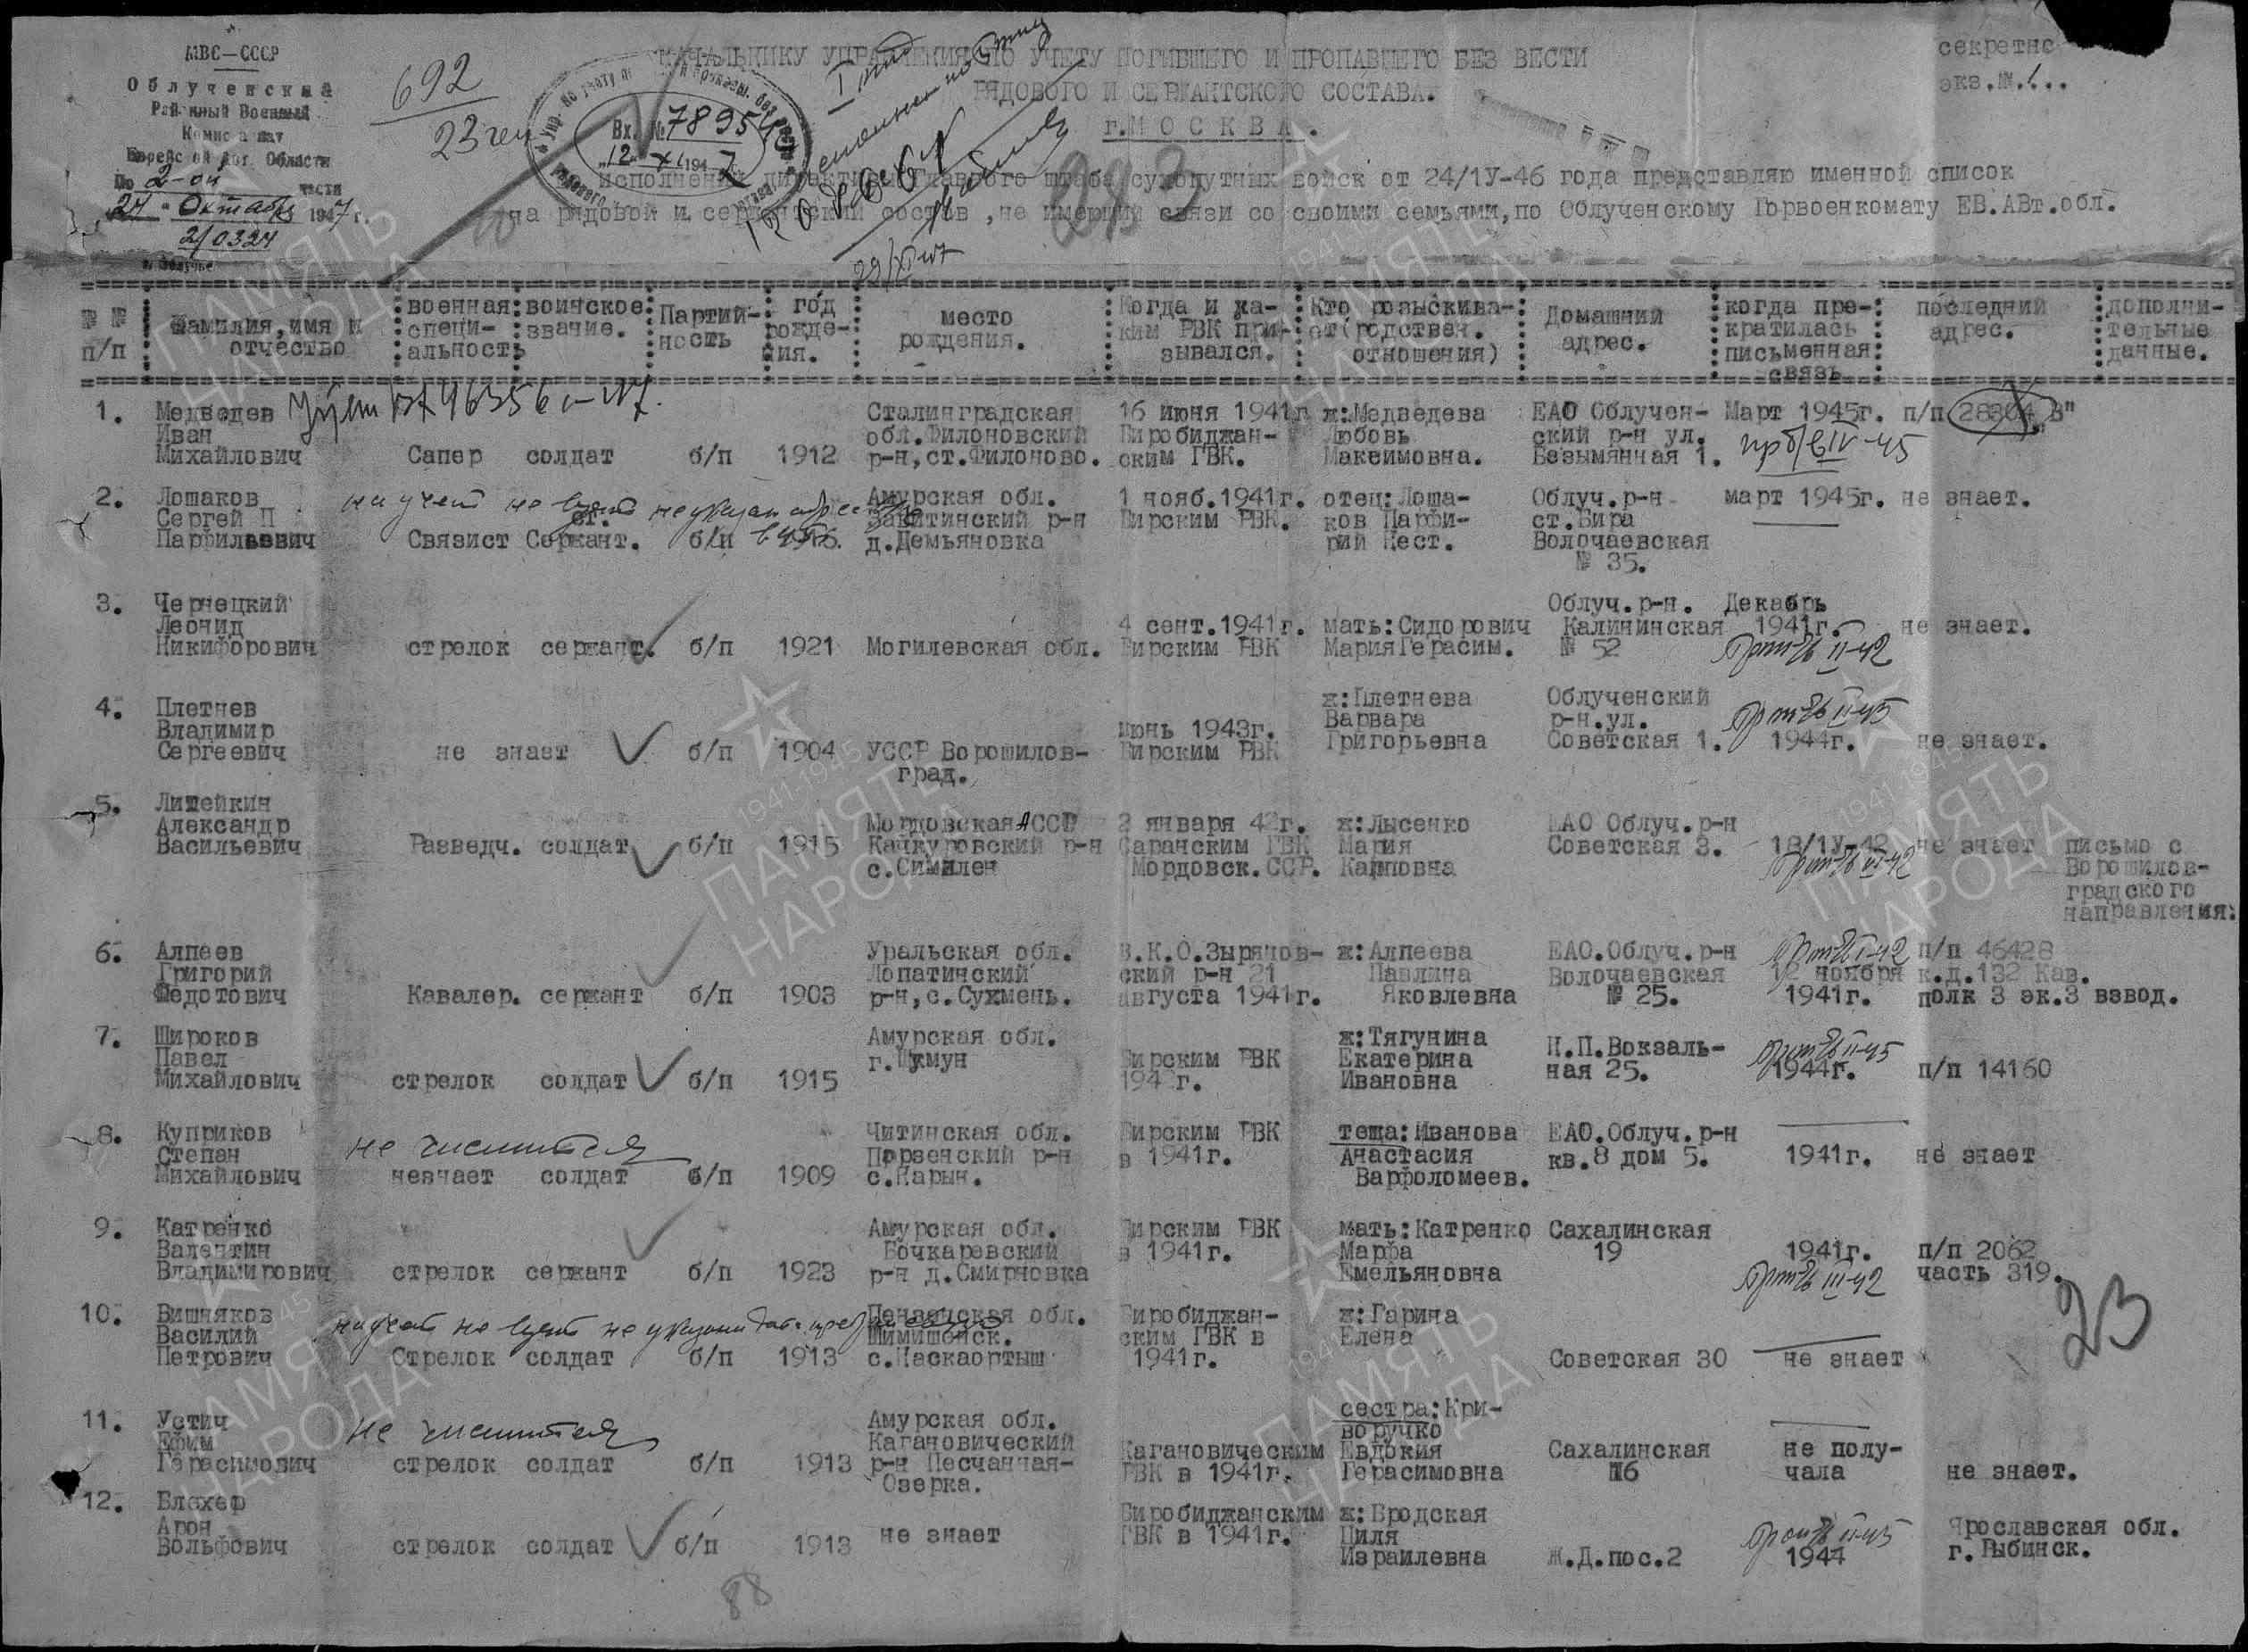 МВС—СССР
Облученский
Районный Военный
Комиссариат
Еврейской Авт. Области
По 2-ой части
24 " Октября 1947 г.
2/0324
г. Облучье
692
23 чел
Вх. № 78954
"12" XI 1947
НАЧАЛЬНИКУ УПРАВЛЕНИЯ ПО УЧЕТУ ПОГИБШЕГО И ПРОПАВШЕГО БЕЗ ВЕСТИ
РЯДОВОГО И СЕРЖАНТСКОГО СОСТАВА.
г.МОСКВА.
секретно
экз.№.1...
исполнении директивы Главного штаба сухопутных войск от 24/1У-46 года представляю именной список
на рядовой и сержантский состав, не имеющий связи со своими семьями, по Облученскому Горвоенкомату ЕВ.АВт.обл.
№ № п/п
Фамилия, имя и отчество
военная специ-альность
воинское звание.
Партий-ность
год рожде-ния.
место рождения.
Когда и ка-ким РВК при-зывался.
Кто розыскива-ет(родствен. отношения)
Домашний адрес.
когда пре-кратилась письменная связь
последний адрес.
дополни-тельные данные.
1. Медведев Сталинградская 16 июня 1941г ж:Медведева ЕАО Облучен- Март 1945г. п/п 28304 "В"
Иван обл.Филоновский Биробиджан- Любовь ский р-н ул.
Михайлович Сапер солдат б/п 1912 р-н,ст.Филоново. ским ГВК. Максимовна. Безымянная 1.
2. Лошаков на учет не взят не указан Амурская обл. 1 нояб.1941г. отец:Лоша- Облуч.р-н март 1945г. не знает.
Сергей П ст. Завитинский р-н Бирским РВК. ков Парфи- ст.Бира
Парфильевич Связист Сержант. б/п д.Демьяновка рий Нест. Волочаевская
№ 35.
3. Чернецкий Облуч.р-н. Декабрь
Леонид 4 сент.1941г. мать:Сидорович Калининская 1941г. не знает.
Никифорович стрелок сержант. б/п 1921 Могилевская обл. Бирским РВК МарияГерасим. № 52
4. Плетнев ж:Плетнева Облученский
Владимир июнь 1943г. Варвара р-н.ул.
Сергеевич не знает б/п 1904 УССР Ворошилов- Бирским РВК Григорьевна Советская 1. 1944г. не знает.
град.
5. Литейкин
Александр МордовскаяАССР 2 января 42г. ж:Лысенко ЕАО Облуч.р-н
Васильевич Разведч. солдат б/п 1915 Качкуровский р-н Саранским ГВК Мария Советская 3. 18/1У-42 не знает письмо с
с.Симилен Мордовск.ССР. Карповна Ворошилов-
градского
направления:
6. Алпеев Уральская обл. В.К.О.Зырянов- ж:Алпеева ЕАО.Облуч.р-н п/п 46428
Григорий Лопатинский ский р-н 21 Павлина Волочаевская 12 ноября к.д.132 Кав.
Федотович Кавалер. сержант б/п 1903 р-н,с.Сухмень. августа 1941г. Яковлевна № 25. 1941г. полк 3 эк.3 взвод.
7. Широков Амурская обл. ж:Тягунина
Павел г.Шумун Бирским РВК Екатерина Н.П.Вокзаль-
Михайлович стрелок солдат б/п 1915 194 г. Ивановна ная 25. 1944г. п/п 14160
8. Куприков не числится Читинская обл. Бирским РВК теща:Иванова ЕАО.Облуч.р-н
Степан р-н в 1941г. Анастасия кв.8 дом 5. 1941г. не знает
Михайлович незнает солдат б/п 1909 с.Нарын. Варфоломеев.
9. Катренко Амурская обл. Бирским РВК мать:Катренко Сахалинская
Валентин Бочкаревский в 1941г. Марфа 19 1941г. п/п 2062
Владимирович стрелок сержант б/п 1923 р-н д.Смирновка Емельяновна часть 319.
10. Вишняков на учет не взят не указана дата Пензенская обл. Биробиджан- ж:Гарина
Василий Шимишейск. ским ГВК в Елена
Петрович Стрелок солдат б/п 1913 с.Наскаортыш 1941г. Советская 30 не знает
23
11. Устич не числится Амурская обл. сестра:Кри-
Ефим Кагановический воручко
Герасимович стрелок солдат б/п 1913 р-н Песчанная- Кагановическим Евдокия Сахалинская не полу-
Озерка. РВК в 1941г. Герасимовна 16 чала не знает.
12. Блехер Биробиджанским ж:Бродская
Арон не знает ГВК в 1941г. Циля Ярославская обл.
Вольфович стрелок солдат б/п 1913 Израилевна Ж.Д.пос.2 1944 г.Рыбинск.
88
ПАМЯТЬ НАРОДА
1941 1945